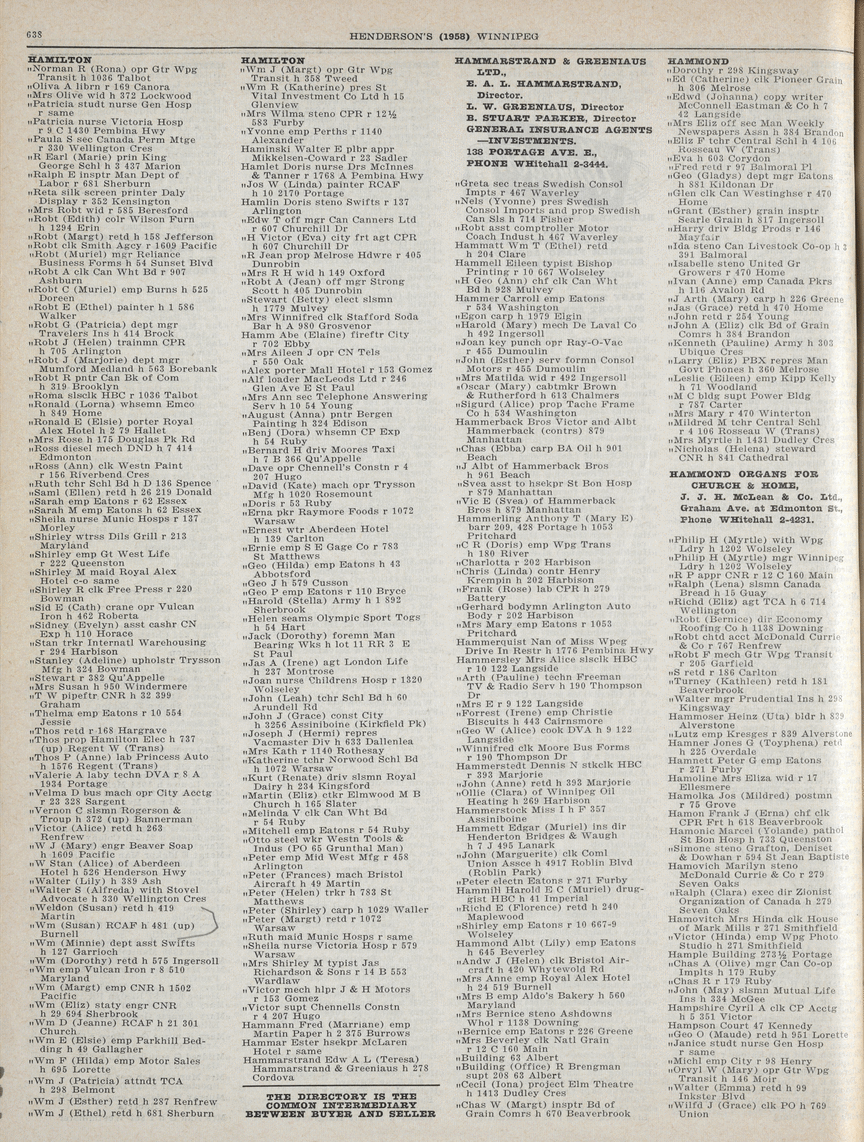 638
HENDERSON'S (1958) WINNIPEG
HAMILTON
"Norman R (Rona) opr Gtr Wpg
Transit h 1036 Talbot
"Oliva A librn r 169 Canora
"Mrs Olive wid h 372 Lockwood
"Patricia studt nurse Gen Hosp
r same
"Patricia nurse Victoria Hosp
r 9 C 1430 Pembina Hwy
"Paula S sec Canada Perm Mtge
r 330 Wellington Cres
"R Earl (Marie) prin King
George Schl h 3 437 Marion
"Ralph E insptr Man Dept of
Labor r 681 Sherburn
"Reta silk screen printer Daly
Display r 352 Kensington
"Mrs Robt wid r 585 Beresford
"Robt (Edith) colr Wilson Furn
h 1294 Erin
"Robt (Margt) retd h 158 Jefferson
"Robt clk Smith Agcy r 1609 Pacific
"Robt (Muriel) mgr Reliance
Business Forms h 54 Sunset Blvd
"Robt A clk Can Wht Bd r 907
Ashburn
"Robt C (Muriel) emp Burns h 525
Doreen
"Robt E (Ethel) painter h 1 586
Walker
"Robt G (Patricia) dept mgr
Travelers Ins h 414 Brock
"Robt J (Helen) trainmn CPR
h 705 Arlington
"Robt J (Marjorie) dept mgr
Mumford Medland h 563 Borebank
"Robt R pntr Can Bk of Com
h 319 Brooklyn
"Roma slsclk HBC r 1036 Talbot
"Ronald (Lorna) whsemn Emco
h 849 Home
"Ronald E (Elsie) porter Royal
Alex Hotel h 2 79 Hallet
"Mrs Rose h 175 Douglas Pk Rd
"Ross diesel mech DND h 7 414
Edmonton
"Ross (Ann) clk Westn Paint
r 156 Riverbend Cres
"Ruth tchr Schl Bd h D 136 Spence
"Saml (Ellen) retd h 26 219 Donald
"Sarah emp Eatons r 62 Essex
"Sarah M emp Eatons h 62 Essex
"Sheila nurse Munic Hosps r 137
Morley
"Shirley wtrss Dils Grill r 213
Maryland
"Shirley emp Gt West Life
r 222 Queenston
"Shirley M maid Royal Alex
Hotel c-o same
"Shirley R clk Free Press r 220
Bowman
"Sid E (Cath) crane opr Vulcan
Iron h 462 Roberta
"Sidney (Evelyn) asst cashr CN
Exp h 110 Horace
"Stan trkr Internatl Warehousing
r 294 Harbison
"Stanley (Adeline) upholstr Trysson
Mfg h 324 Bowman
"Stewart r 382 Qu'Appelle
"Mrs Susan h 950 Windermere
"T W pipeftr CNR h 32 399
Graham
"Thelma emp Eatons r 10 554
Jessie
"Thos retd r 168 Hargrave
"Thos prop Hamilton Elec h 737
(up) Regent W (Trans)
"Thos P (Anne) lab Princess Auto
h 1576 Regent (Trans)
"Valerie A laby techn DVA r 8 A
1934 Portage
"Velma D bus mach opr City Acctg
r 23 328 Sargent
"Vernon C slsmn Rogerson &
Troup h 372 (up) Bannerman
"Victor (Alice) retd h 263
Renfrew
"W J (Mary) engr Beaver Soap
h 1609 Pacific
"W Stan (Alice) of Aberdeen
Hotel h 526 Henderson Hwy
"Walter (Lily) h 389 Ash
"Walter S (Alfreda) with Stovel
Advocate h 330 Wellington Cres
"Weldon (Susan) retd h 419
Martin
"Wm (Susan) RCAF h 481 (up)
Burnell
"Wm (Minnie) dept asst Swifts
h 127 Garrioch
"Wm (Dorothy) retd h 575 Ingersoll
"Wm emp Vulcan Iron r 8 510
Maryland
"Wm (Margt) emp CNR h 1502
Pacific
"Wm (Eliz) staty engr CNR
h 29 694 Sherbrook
"Wm D (Jeanne) RCAF h 21 301
Church
"Wm E (Elsie) emp Parkhill Bed-
ding h 49 Gallagher
"Wm F (Hilda) emp Motor Sales
h 695 Lorette
"Wm J (Patricia) attndt TCA
h 298 Belmont
"Wm J (Esther) retd h 287 Renfrew
"Wm J (Ethel) retd h 681 Sherburn
HAMILTON
"Wm J (Margt) opr Gtr Wpg
Transit h 358 Tweed
"Wm R (Katherine) pres St
Vital Investment Co Ltd h 15
Glenview
"Mrs Wilma steno CPR r 12½
583 Furby
"Yvonne emp Perths r 1140
Alexander
Haminski Walter E plbr appr
Mikkelsen-Coward r 23 Sadler
Hamlet Doris nurse Drs McInnes
& Tanner r 1768 A Pembina Hwy
"Jos W (Linda) painter RCAF
h 10 2170 Portage
Hamlin Doris steno Swifts r 137
Arlington
"Edw T off mgr Can Canners Ltd
r 607 Churchill Dr
"H Victor (Eva) city frt agt CPR
h 607 Churchill Dr
"R Jean prop Melrose Hdwre r 405
Dunrobin
"Mrs R H wid h 149 Oxford
"Robt A (Jean) off mgr Strong
Scott h 405 Dunrobin
"Stewart (Betty) elect slsmn
h 1779 Mulvey
"Mrs Winnifred clk Stafford Soda
Bar h A 980 Grosvenor
Hamm Abe (Elaine) fireftr City
r 702 Ebby
"Mrs Aileen J opr CN Tels
r 550 Oak
"Alex porter Mall Hotel r 153 Gomez
"Alf loader MacLeods Ltd r 246
Glen Ave E St Paul
"Mrs Ann sec Telephone Answering
Serv h 10 54 Young
"August (Anna) pntr Bergen
Painting h 324 Edison
"Benj (Dora) whsemn CP Exp
h 54 Ruby
"Bernard H driv Moores Taxi
h 7 B 366 Qu'Appelle
"Dave opr Chennell's Constn r 4
207 Hugo
"David (Kate) mach opr Trysson
Mfg h 1020 Rosemount
"Doris r 53 Ruby
"Erna pkr Raymore Foods r 1072
Warsaw
"Ernest wtr Aberdeen Hotel
h 139 Carlton
"Ernie emp S E Gage Co r 783
St Matthews
"Geo (Hilda) emp Eatons h 43
Abbotsford
"Geo J h 579 Cusson
"Geo P emp Eatons r 110 Bryce
"Harold (Stella) Army h 1 892
Sherbrook
"Helen seams Olympic Sport Togs
h 54 Hart
"Jack (Dorothy) foremn Man
Bearing Wks h lot 11 RR 3 E
St Paul
"Jas A (Irene) agt London Life
h 237 Montrose
"Joan nurse Childrens Hosp r 1320
Wolseley
"John (Leah) tchr Schl Bd h 60
Arundell Rd
"John J (Grace) const City
h 3256 Assiniboine (Kirkfield Pk)
"Joseph J (Hermi) repres
Vacmaster Div h 633 Dallenlea
"Mrs Kath r 1140 Rothesay
"Katherine tchr Norwood Schl Bd
h 1072 Warsaw
"Kurt (Renate) driv slsmn Royal
Dairy h 234 Kingsford
"Martin (Eliz) ctkr Elmwood M B
Church h 165 Slater
"Melinda V clk Can Wht Bd
r 54 Ruby
"Mitchell emp Eatons r 54 Ruby
"Otto steel wkr Westn Tools &
Indus (PO 65 Grunthal Man)
"Peter emp Mid West Mfg r 458
Arlington
"Peter (Frances) mach Bristol
Aircraft h 49 Martin
"Peter (Helen) trkr h 783 St
Matthews
"Peter (Shirley) carp h 1029 Waller
"Peter (Margt) retd r 1072
Warsaw
"Ruth maid Munic Hosps r same
"Sheila nurse Victoria Hosp r 579
Warsaw
"Mrs Shirley M typist Jas
Richardson & Sons r 14 B 553
Wardlaw
"Victor mech hlpr J & H Motors
r 153 Gomez
"Victor supt Chennells Constn
r 4 207 Hugo
Hammann Fred (Marriane) emp
Martin Paper h 2 375 Burrows
Hammar Ester hsekpr McLaren
Hotel r same
Hammarstrand Edw A L (Teresa)
Hammarstrand & Greeniaus h 278
Cordova
THE DIRECTORY IS THE
COMMON INTERMEDIARY
BETWEEN BUYER AND SELLER
HAMMARSTRAND & GREENIAUS
LTD.,
E. A. L. HAMMARSTRAND,
Director.
L. W. GREENIAUS, Director
B. STUART PARKER, Director
GENERAL INSURANCE AGENTS
—INVESTMENTS.
138 PORTAGE AVE. E.,
PHONE WHitehall 2-3444.
"Greta sec treas Swedish Consol
Impts r 467 Waverley
"Nels (Yvonne) pres Swedish
Consol Imports and prop Swedish
Can Sls h 714 Fisher
"Robt asst comptroller Motor
Coach Indust h 467 Waverley
Hammatt Wm T (Ethel) retd
h 204 Clare
Hammell Eileen typist Bishop
Printing r 10 667 Wolseley
"H Geo (Ann) chf clk Can Wht
Bd h 928 Mulvey
Hammer Carroll emp Eatons
r 534 Washington
"Egon carp h 1979 Elgin
"Harold (Mary) mech De Laval Co
h 492 Ingersoll
"Joan key punch opr Ray-O-Vac
r 455 Dumoulin
"John (Esther) serv formn Consol
Motors r 455 Dumoulin
"Mrs Matilda wid r 492 Ingersoll
"Oscar (Mary) cabtmkr Brown
& Rutherford h 613 Chalmers
"Sigurd (Alice) prop Tache Frame
Co h 534 Washington
Hammerback Bros Victor and Albt
Hammerback (contrs) 879
Manhattan
"Chas (Ebba) carp BA Oil h 901
Beach
"J Albt of Hammerback Bros
h 961 Beach
"Svea asst to hsekpr St Bon Hosp
r 879 Manhattan
"Vic E (Svea) of Hammerback
Bros h 879 Manhattan
Hammerling Anthony T (Mary E)
barr 209, 428 Portage h 1053
Pritchard
"C R (Doris) emp Wpg Trans
h 180 River
"Charlotta r 202 Harbison
"Chris (Linda) contr Henry
Krempin h 202 Harbison
"Frank (Rose) lab CPR h 279
Battery
"Gerhard bodymn Arlington Auto
Body r 202 Harbison
"Mrs Mary emp Eatons r 1053
Pritchard
Hammerquist Nan of Miss Wpeg
Drive In Restr h 1776 Pembina Hwy
Hammersley Mrs Alice slsclk HBC
r 10 122 Langside
"Arth (Pauline) techn Freeman
TV & Radio Serv h 190 Thompson
Dr
"Mrs E r 9 122 Langside
"Forrest (Irene) emp Christie
Biscuits h 443 Cairnsmore
"Geo W (Alice) cook DVA h 9 122
Langside
"Winnifred clk Moore Bus Forms
r 190 Thompson Dr
Hammerstedt Dennis N stkclk HBC
r 393 Marjorie
"John (Anne) retd h 393 Marjorie
"Ollie (Clara) of Winnipeg Oil
Heating h 269 Harbison
Hammerstock Miss I h F 357
Assiniboine
Hammett Edgar (Muriel) ins dir
Henderton Bridges & Waugh
h 7 J 495 Lanark
"John (Marguerite) clk Coml
Union Assce h 4917 Roblin Blvd
(Roblin Park)
"Peter electn Eatons r 271 Furby
Hammill Harold E C (Muriel) drug-
gist HBC h 41 Imperial
"Richd E (Florence) retd h 240
Maplewood
"Shirley emp Eatons r 10 667-9
Wolseley
Hammond Albt (Lily) emp Eatons
h 645 Beverley
"Andw J (Helen) clk Bristol Air-
craft h 420 Whytewold Rd
"Mrs Anne emp Royal Alex Hotel
h 24 519 Burnell
"Mrs B emp Aldo's Bakery h 560
Maryland
"Mrs Bernice steno Ashdowns
Whol r 1138 Downing
"Bernice emp Eatons r 226 Greene
"Mrs Beverley clk Natl Grain
r 12 C 160 Main
"Building 63 Albert
"Building (Office) R Brengman
supt 208 63 Albert
"Cecil (Iona) project Elm Theatre
h 1413 Dudley Cres
"Chas W (Margt) insptr Bd of
Grain Comrs h 670 Beaverbrook
HAMMOND
"Dorothy r 298 Kingsway
"Ed (Catherine) clk Pioneer Grain
h 306 Melrose
"Edwd (Johanna) copy writer
McConnell Eastman & Co h 7
42 Langside
"Mrs Eliz off sec Man Weekly
Newspapers Assn h 384 Brandon
"Eliz F tchr Central Schl h 4 106
Rosseau W (Trans)
"Eva h 603 Corydon
"Fred retd r 97 Balmoral Pl
"Geo (Gladys) dept mgr Eatons
h 881 Kildonan Dr
"Glen clk Can Westinghse r 470
Home
"Grant (Esther) grain insptr
Searle Grain h 817 Ingersoll
"Harry driv Bldg Prods r 146
Mayfair
"Ida steno Can Livestock Co-op h 3
391 Balmoral
"Isabelle steno United Gr
Growers r 470 Home
"Ivan (Anne) emp Canada Pkrs
h 116 Avalon Rd
"J Arth (Mary) carp h 226 Greene
"Jas (Grace) retd h 470 Home
"John retd r 254 Young
"John A (Eliz) clk Bd of Grain
Comrs h 384 Brandon
"Kenneth (Pauline) Army h 303
Ubique Cres
"Larry (Eliz) PBX repres Man
Govt Phones h 360 Melrose
"Leslie (Eileen) emp Kipp Kelly
h 71 Woodland
"M C bldg supt Power Bldg
r 787 Carter
"Mrs Mary r 470 Winterton
"Mildred M tchr Central Schl
r 4 106 Rosseau W (Trans)
"Mrs Myrtle h 1431 Dudley Cres
"Nicholas (Helena) steward
CNR h 841 Cathedral
HAMMOND ORGANS FOR
CHURCH & HOME,
J. J. H. McLean & Co. Ltd.,
Graham Ave. at Edmonton St.,
Phone WHitehall 2-4231.
"Philip H (Myrtle) with Wpg
Ldry h 1202 Wolseley
"Philip H (Myrtle) mgr Winnipeg
Ldry h 1202 Wolseley
"R P appr CNR r 12 C 160 Main
"Ralph (Lena) slsmn Canada
Bread h 15 Guay
"Richd (Eliz) agt TCA h 6 714
Wellington
"Robt (Bernice) dir Economy
Roofing Co h 1138 Downing
"Robt chtd acct McDonald Currie
& Co r 767 Renfrew
"Robt F mech Gtr Wpg Transit
r 205 Garfield
"S retd r 186 Carlton
"Turney (Kathleen) retd h 181
Beaverbrook
"Walter mgr Prudential Ins h 298
Kingsway
Hammoser Heinz (Uta) bldr h 839
Alverstone
"Lutz emp Kresges r 839 Alverstone
Hamner Jones G (Toyphena) retd
h 225 Overdale
Hamnett Peter G emp Eatons
r 271 Furby
Hamoline Mrs Eliza wid r 17
Ellesmere
Hamolka Jos (Mildred) postmn
r 75 Grove
Hamon Frank J (Erna) chf clk
CPR Frt h 618 Beaverbrook
Hamonic Marcel (Yolande) pathol
St Bon Hosp h 733 Queenston
"Simone steno Grafton, Deniset
& Dowhan r 594 St Jean Baptiste
Hamovich Marilyn steno
McDonald Currie & Co r 279
Seven Oaks
"Ralph (Clara) exec dir Zionist
Organization of Canada h 279
Seven Oaks
Hamovitch Mrs Hinda clk House
of Mark Mills r 271 Smithfield
"Victor (Hinda) emp Wpg Photo
Studio h 271 Smithfield
Hample Building 273½ Portage
"Chas A (Olive) mgr Can Co-op
Implts h 179 Ruby
"Chas R r 179 Ruby
"John (May) slsmn Mutual Life
Ins h 334 McGee
Hampshire Cyril A clk CP Acctg
h 5 351 Victor
Hampson Court 47 Kennedy
"Geo O (Maude) retd h 951 Lorette
"Janice studt nurse Gen Hosp
r same
"Michl emp City r 98 Henry
"Orvyl W (Mary) opr Gtr Wpg
Transit h 146 Moir
"Walter (Emma) retd h 99
Inkster Blvd
"Wilfd J (Grace) clk PO h 769
Union